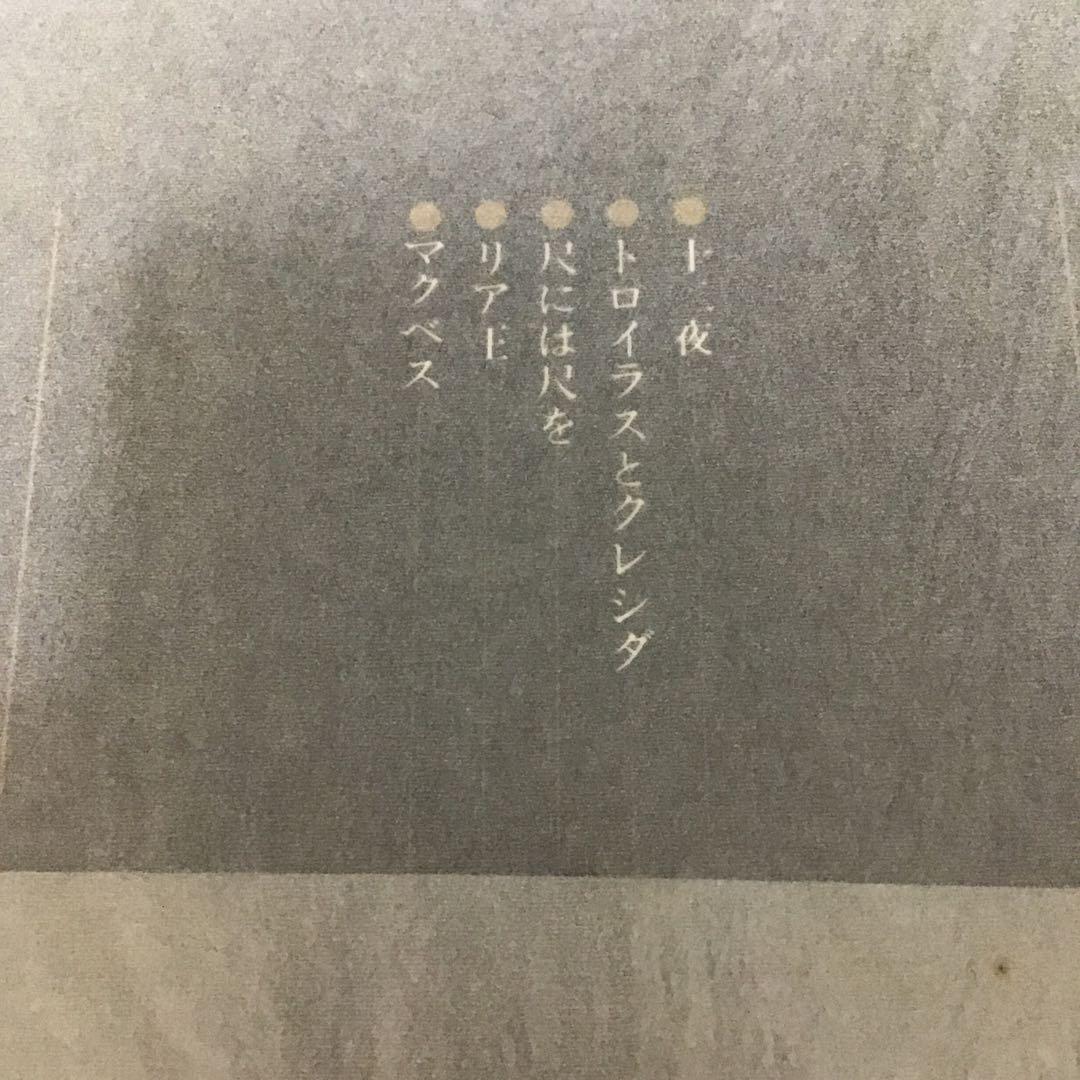 ●十二夜
●トロイラスとクレシダ
●尺には尺を
●リア王
●マクベス